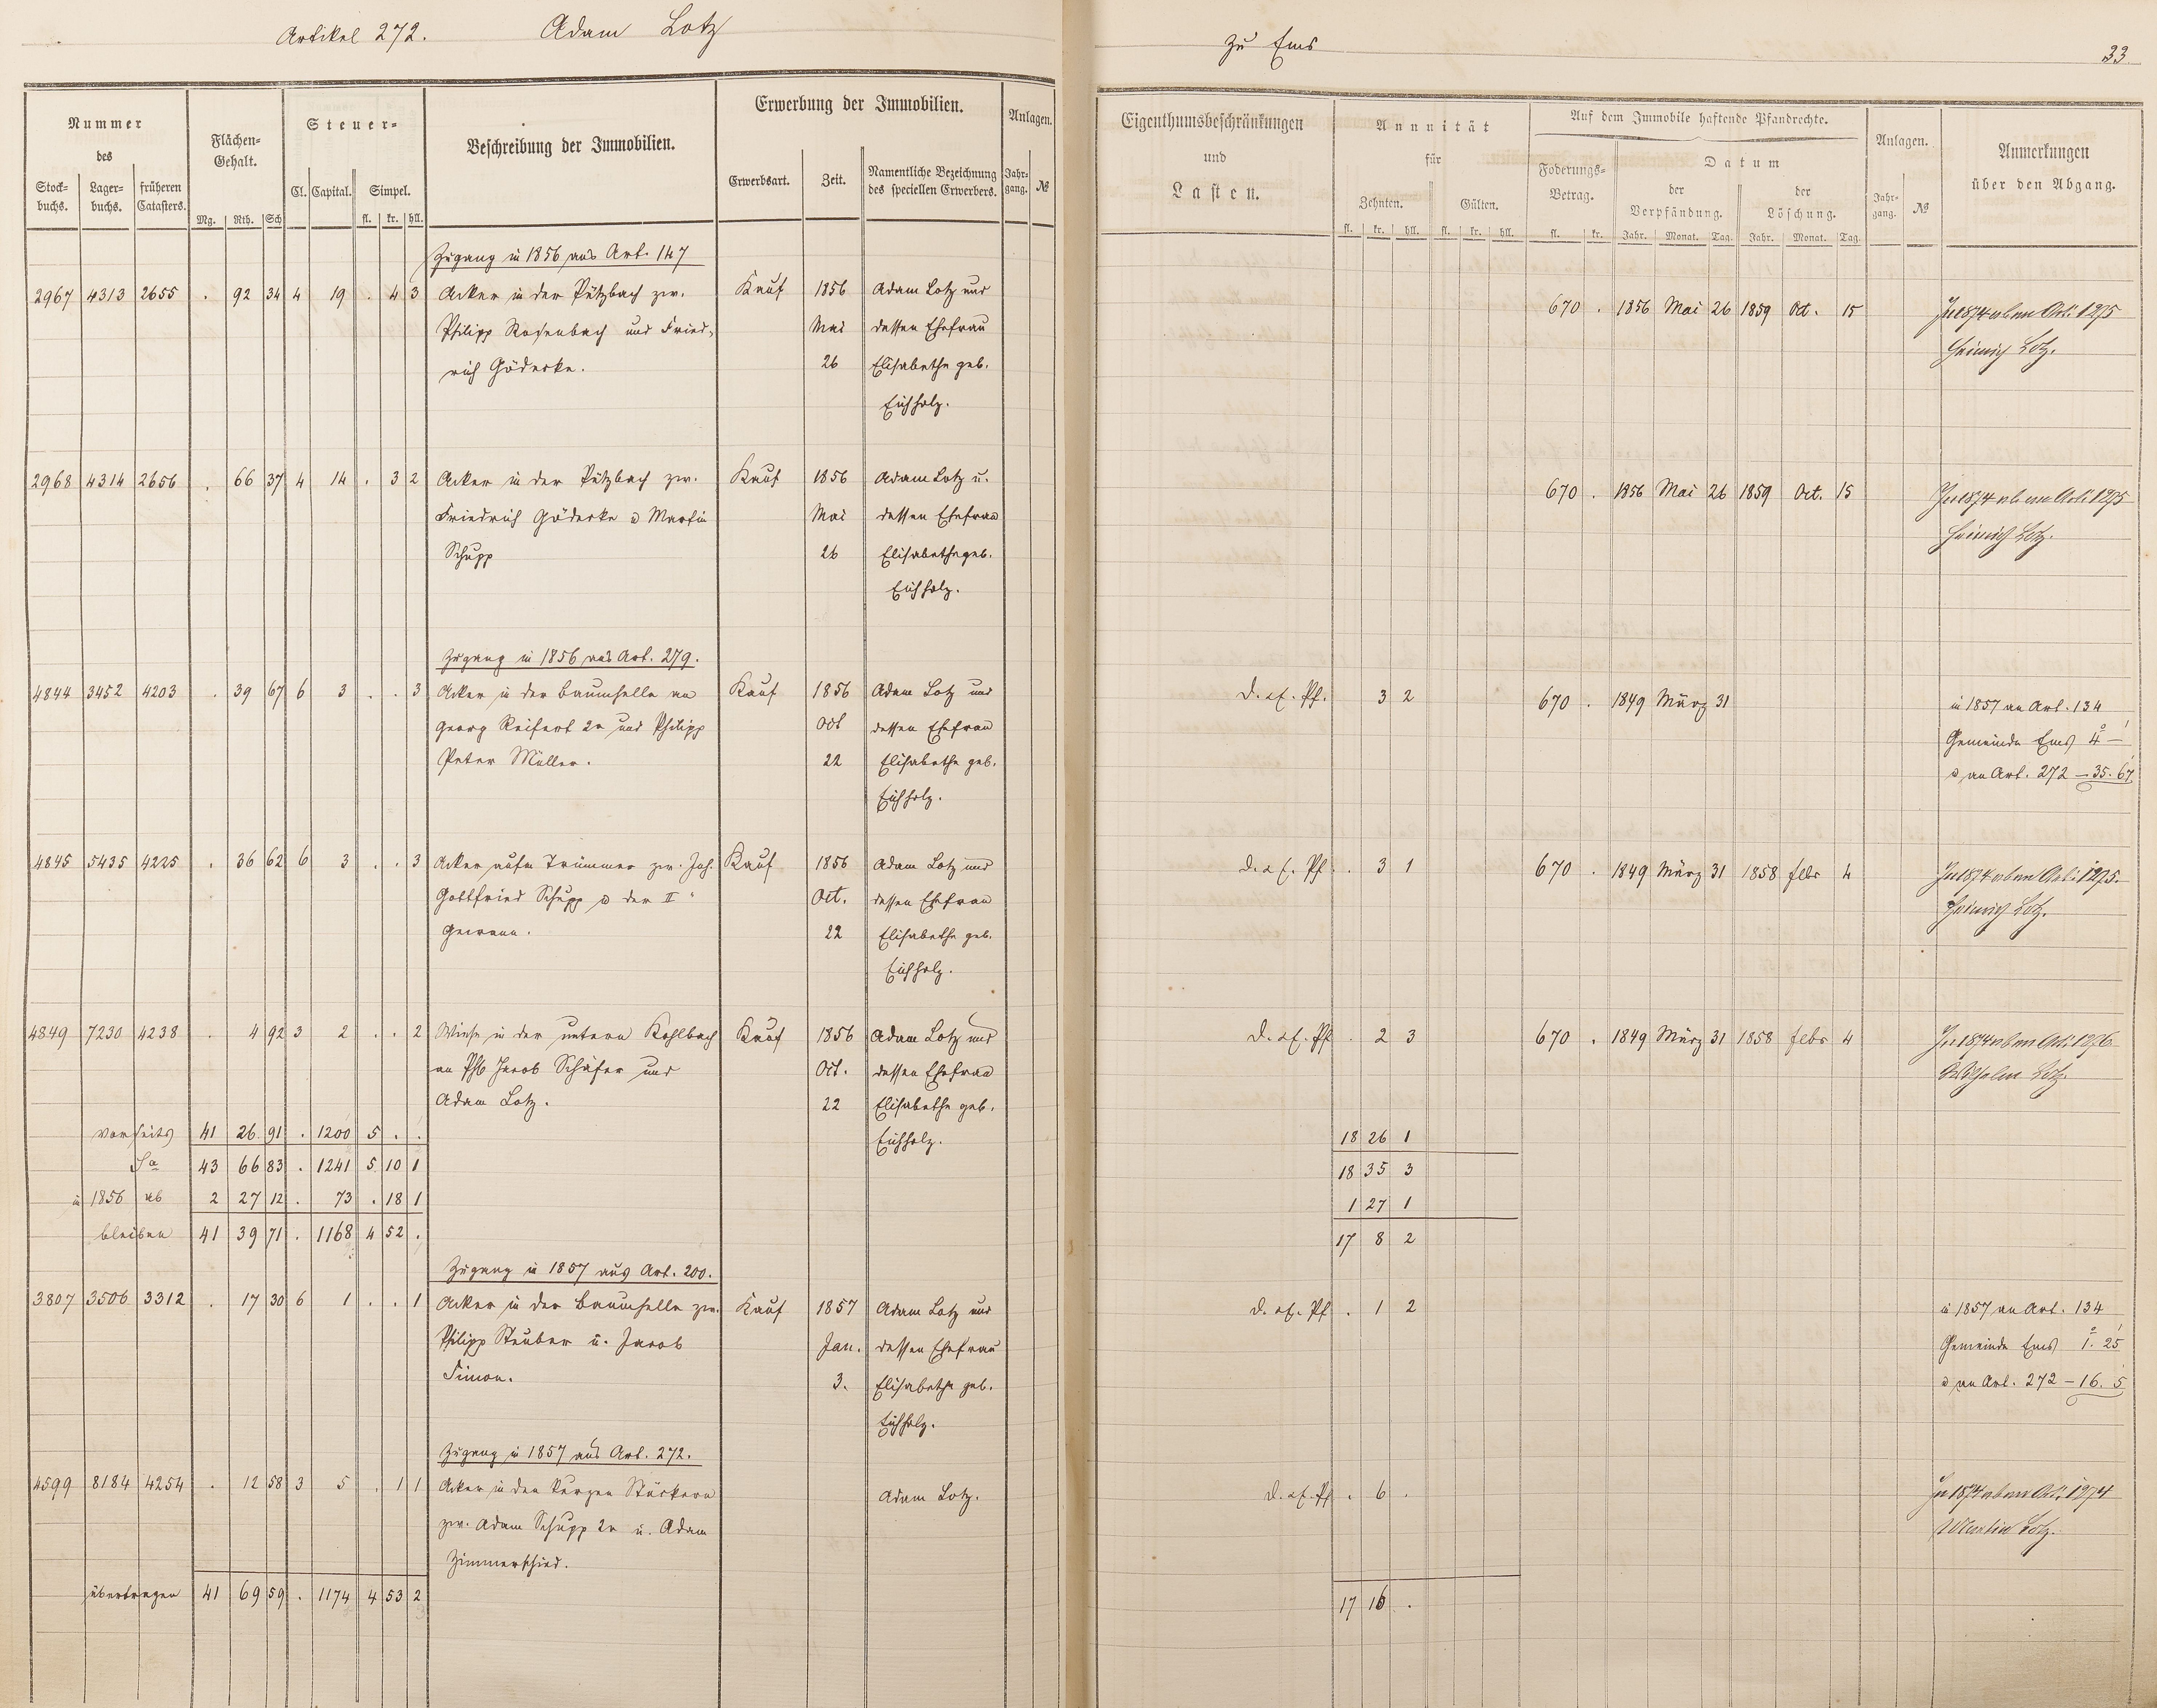 Artikel 272. Adam Lotz
zu Ems
33
Nummer des
Stockbuchs. Lagerbuchs. früheren Catasters.
Flächen-Gehalt.
Mg. Rth. Sch
Steuer-
Cl. Capital. Simpel.
fl. kr. hll.
Beschreibung der Immobilien.
Erwerbung der Immobilien.
Erwerbsart. Zeit. Namentliche Bezeichnung des speciellen Erwerbers.
Anlagen.
Jahrgang. №
Eigenthumsbeschränkungen
und
Lasten.
Annuität
für
Zehnten. Gülten.
fl. kr. hll. fl. kr. hll.
Auf dem Immobile haftende Pfandrechte.
Foderungs-Betrag.
fl. kr.
Datum
der Verpfändung. der Löschung.
Jahr. Monat. Tag. Jahr. Monat. Tag.
Anlagen.
Jahrgang. №
Anmerkungen
über den Abgang.
Zugang in 1856 aus Art. 147
2967 4313 2655 . 92 34 4 19 . 4 3 Acker in der Pützbach zw. Kauf 1856 Adam Lotz und 670 . 1856 Mai 26 1859 Oct. 15 In 1874 ab an Art. 1275
Philipp Rosenbach und Fried- Mai dessen Ehefrau Heinrich Lotz.
rich Gödecke. 26 Elisabethe geb.
Eichholz.
2968 4314 2656 . 66 37 4 14 . 3 2 Acker in der Pützbach zw. Kauf 1856 Adam Lotz u. 670 . 1856 Mai 26 1859 Oct. 15 In 1874 ab an Art. 1275
Friedrich Gödecke u Martin Mai dessen Ehefrau Heinrich Lotz.
Schupp 26 Elisabethe geb.
Eichholz.
Zugang in 1856 aus Art. 279.
4844 3452 4203 . 39 67 6 3 . . 3 Acker in der Baumhelle an Kauf 1856 Adam Lotz und D. Pf. 3 2 670 . 1849 März 31 in 1857 an Art. 134
Georg Reifert 2r und Philipp Oct dessen Ehefrau Gemeinde Ems 4 —
Peter Müller. 22 Elisabethe geb. u an Art. 272 — 35. 67
Eichholz.
4845 5435 4225 . 36 62 6 3 . . 3 Acker aufm Trümmer zw. Joh. Kauf 1856 Adam Lotz und D. Pf. . 3 1 670 . 1849 März 31 1858 febr 4 In 1874 ab an Art. 1275.
Gottfried Schupp u der II Oct. dessen Ehefrau Heinrich Lotz.
Gewann. 22 Elisabethe geb.
Eichholz.
4849 7230 4238 . 4 92 3 2 . . 2 Wiese in der untern Kohlbach Kauf 1856 Adam Lotz und D. Pf . 2 3 670 . 1849 März 31 1858 febr 4 In 1874 ab an Art. 1276
an Phb Jacob Schäfer und Oct. dessen Ehefrau Wilhelm Lotz.
Adam Lotz. 22 Elisabethe geb.
vorseits 41 26 91 . 1200 5 . . Eichholz. 18 26 1
Sa 43 66 83 . 1241 5 10 1 18 35 3
in 1856 ab 2 27 12 . 73 . 18 1 1 27 1
bleiben 41 39 71 . 1168 4 52 . 17 8 2
Zugang in 1857 aus Art. 200.
3807 3506 3312 . 17 30 6 1 . . 1 Acker in der Baumhelle zw. Kauf 1857 Adam Lotz und D. Pf . 1 2 in 1857 an Art. 134
Philipp Steuber u. Jacob Jan. dessen Ehefrau Gemeinde Ems 1. 25
Simon. 3. Elisabethe geb. u an Art. 272 — 16. 5
Eichholz.
Zugang in 1857 aus Art. 272.
4599 8184 4254 . 12 58 3 5 . 1 1 Acker in den kurzen Stückern Adam Lotz. D. Pf . 6 . In 1874 ab an Art. 1274
zw. Adam Schupp 2r u. Adam Martin Lotz.
Zimmerschied.
übertragen 41 69 59 . 1174 4 53 2 17 16 .